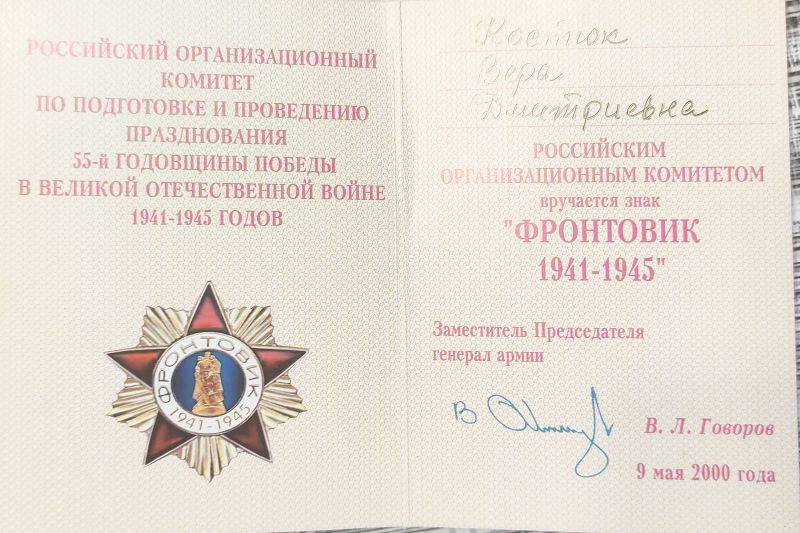 РОССИЙСКИЙ ОРГАНИЗАЦИОННЫЙ
КОМИТЕТ
ПО ПОДГОТОВКЕ И ПРОВЕДЕНИЮ
ПРАЗДНОВАНИЯ
55-й ГОДОВЩИНЫ ПОБЕДЫ
В ВЕЛИКОЙ ОТЕЧЕСТВЕННОЙ ВОЙНЕ
1941-1945 ГОДОВ
ФРОНТОВИК
1941-1945
Костюк
Вера
Дмитриевна
РОССИЙСКИМ
ОРГАНИЗАЦИОННЫМ КОМИТЕТОМ
вручается знак
"ФРОНТОВИК
1941-1945"
Заместитель Председателя
генерал армии
В. Л. Говоров
9 мая 2000 года